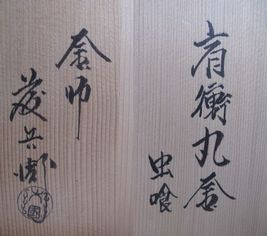 肩衝丸釜
虫喰
釜師
菊兵衛